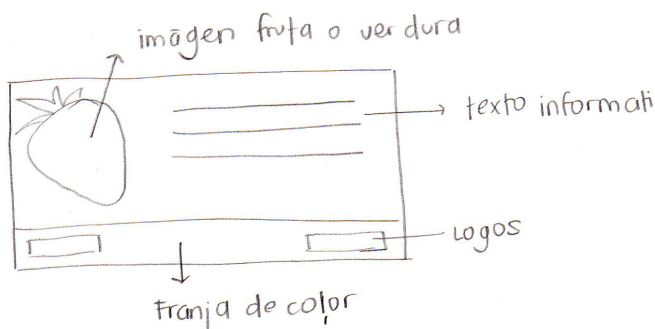 imágen fruta o verdura
texto informati
Logos
Franja de color